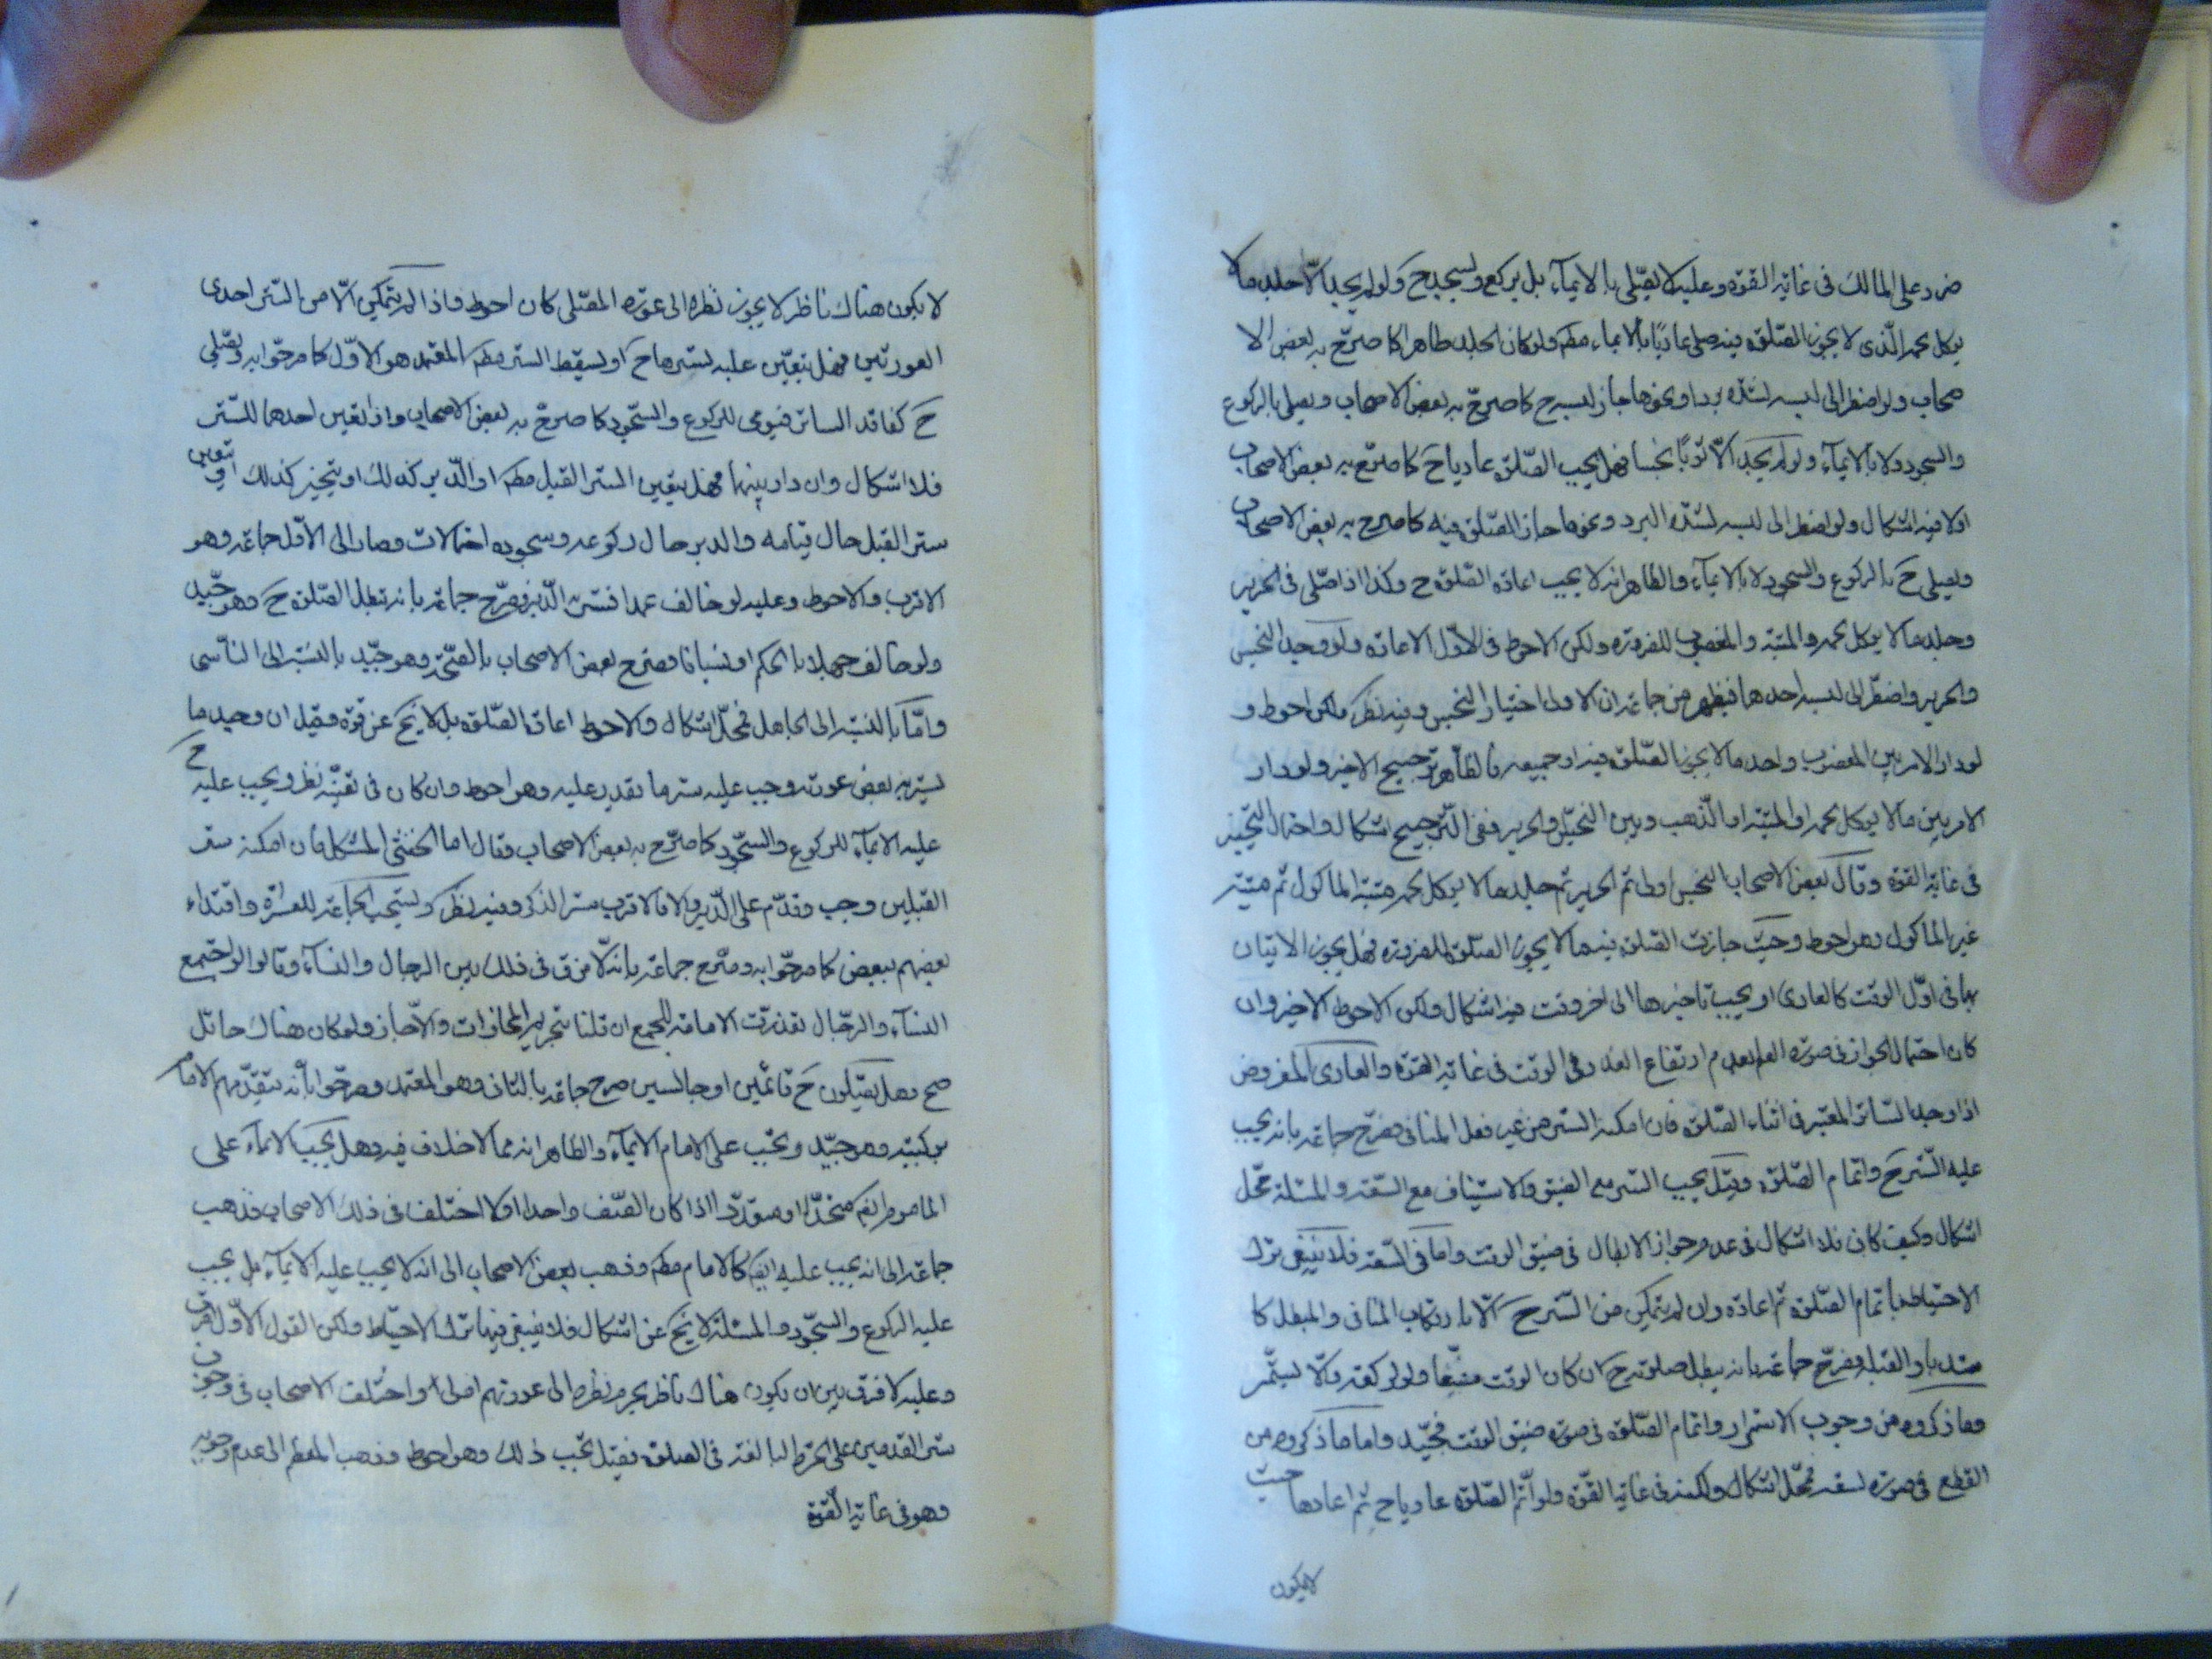 ضرر على المالك فى غاية القوة وعليه لا يصلى بالايمآء بل يركع ويسجد ح ولو لم يجد الّا جلد ما لا
يوكل لحمه الّذى لا يجوز الصّلوة فيه صلى عاريا بالايماء مطم ولو كان الجلد طاهرا كما صرّح به بعض الا
صحاب ولو اضطر الى لبسه لشدّة برد او نحوها جاز لبسه ح كما صرّح به بعض الاصحاب ويصلى بالركوع
والسجود ولا بالايمآء ولو لم يجد الّا ثوبًا نجسا فهل يجب الصّلوة عاريا ح كما صرّح به بعض الاصحاب
اولا فيه اشكال ولو اضطر الى لبسه لشدّة البرد ونحوها جاز الصّلوة فيه كما صرح به بعض الاصحاب
ويصلى ح بالركوع والسجود لا بالايمآء والظاهر انه لا يجب اعادة الصّلوة ح وكذا اذا صلّى فى الحرير
وجلد ما لا يوكل لحمه والميتة والمغصوب للضرورة ولكن الاحوط فى الاوّل الاعادة ولو وجد النجس
والحرير واضطرّ الى لبس احدهما فيظهر من جماعة ان الاولى اختيار النجس وفيه نظر ولكن احوط و
لو دار الامر بين المغصوب واحد ما لا يجوز الصّلوة فيه او جميعه فالظاهر ترجيح الاخير ولو دار
الامر بين ما لا يوكل لحمه او الميتة او الذّهب وبين النجس والحرير ففى الترجيح اشكال واحتمال التخيير
فى غاية القوة وقال بعض الاصحاب النجس اولى ثم الحرير ثم جلد ما لا يوكل لحمه ميتة الماكول ثم ميتة
غير الماكول وهو احوط وحيث جازت الصّلوة فيما لا يجوز الصّلوة للضرورة فهل يجوز الاتيان
بها فى اوّل الوقت كالعارى او يجب تاخيرها الى اخر وقت فيه اشكال ولكن الاحوط الاخير وان
كان احتمال الجواز فى صورة العلم بعدم ارتفاع العذر فى الوقت فى غاية القوّة والعارى المفروض
اذا وجد السّاتر المعتبر فى اثناء الصّلوة فان امكنه الستر من غير فعل المنافى فصرّح جماعة بانه يجب
عليه السّتر ح واتمام الصّلوة وقيل يجب الستر مع الضيق والاستيناف مع السّعة والمسئلة محّل
اشكال وكيف كان فلا اشكال فى عدم جواز الابطال فى ضيق الوقت واما فى السّعة فلا ينبغى ترك
الاحتياط باتمام الصّلوة ثم اعادة وان لم يتمكن من السّتر ح الّا بارتكاب المنافى والمبطل كا
ستدبار القبلة فصرّح جماعة بانه يبطل صلوته ح ان كان الوقت متّسعا ولو لركعة والّا يستّمر
وما ذكروه من وجوب الاستمرار واتمام الصّلوة فى صورة ضيق الوقت فجيّد واما ما ذكروه من
القطع فى صورة لسعة فمحّل اشكال ولكنه فى غاية القوّة ولو اتّم الصّلوة عاريا ح ثم اعادها حيث
لا يكون
لا يكون هناك ناظر لا يجوز نظره الى عورة المصّلى كان احوط فاذا لم يتمكن الّا من السّتر احدى
العورتين فهل يتعيّن عليه سترها ح او يسقط الستر مطم المعتمد هو الاوّل كما صرّحوا به ويصّلى
ح كفاقد الساتر فيومى للركوع والسّجود كما صرّح به بعض الاصحاب واذا تعين احدهما للسّتر
فلا اشكال وان دار بينهما فهل يتعين الستر القبل مطم او الّدبر كذلك او يتخير كذلك او يتعين
ستر القبل حال قيامه والدبر حال ركوعه وسجوده احتمالات وصار الى الاوّل جماعة وهو
الاقرب والاحوط وعليه لو خالف عمدا فستر الّدبر فصرّح جماعة بانه تبطل الصّلوة ح وهو جيّد
ولو خالف جهلا بالحكم او نسيانا فصّرح بعض الاصحاب بالصّحّة وهو جّيد بالنسبة الى الناسى
وامّا بالنسبة الى الجاهل فمحّل اشكال والاحوط اعادة الصّلوة بل لا يخ عن قوة وقيل ان وجد ما
يستر به بعض عورته وجب عليه ستر ما يقدر عليه وهو احوط وان كان فى تعيّنه نظر ويجب عليه ح
عليه الايمآء للركوع والسّجود كما صّرح به بعض الاصحاب وقال اما الخنثى المشكل فان امكنه ستر
القبلين وجب وقدّم على الّدبر والا فالاقرب ستر الذكر وفيه نظر ويستحب الجماعة للعراة واقتداء
بعضهم ببعض كما صرّحوا به وصّرح جماعة بانه لا فرق فى ذلك بين الرجال والنسآء وقالوا لو اجتمع
النسآء والرّجال تعذرت الامامة للجمع ان قلنا بتحريم المحاذات والّا جاز ولو كان هناك حائل
صح وهل يصّلون ح قائمين او جالسين صرح جماعة بالثانى وهو المعتمد وصرّحوا بأنه يتقدّمهم الامام
بركبتيه وهو جيّد ويجب على الامام الايمآء والظاهر انه مما لا خلاف فيه وهل يجب الايمآء على
الماموم ايضم متحدّا او متعدّدا اذا كان الصّف واحدا اولا اختلف فى ذلك الاصحاب فذهب
جماعة الى انه يجب عليه ايضم كالامام مطم وذهب بعض الاصحاب الى انه لا يجب عليه الايمآء بل يجب
عليه الركوع والسّجود والمسئلة لا يخ عن اشكال فلا ينبغى فيها ترك الاحتياط ولكن القول الاوّل اقرب
وعليه لا فرق بين ان يكون هناك ناظر يحرم نظره الى عورتهم اولا واختلف الاصحاب فى وجوب
ستر القدمين على الحرة البالغة فى الصلوة فقيل يجب ذلك وهو احوط وذهب المعظم الى عدم وجوبه
وهو فى غاية القّوة